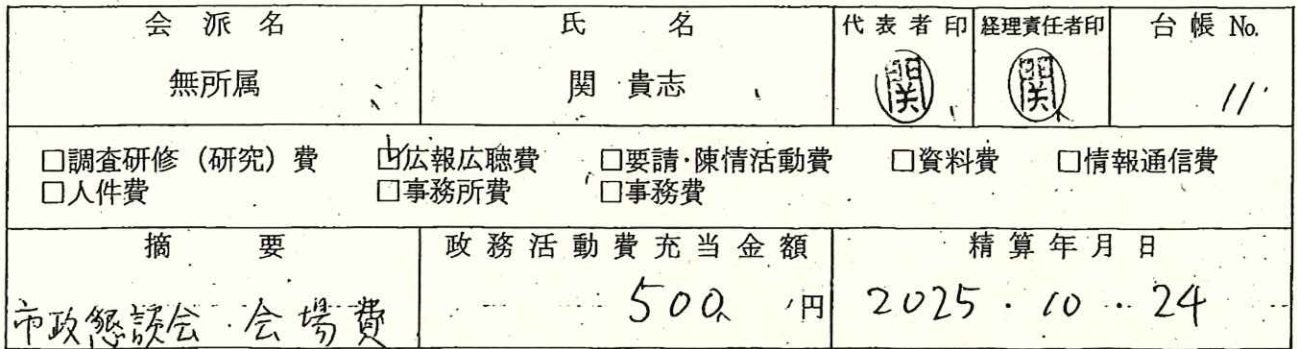 会派名 氏名 代表者印 経理責任者印 台帳No.
無所属 関 貴志 関 関 11
□調査研修（研究）費 ☑広報広聴費 □要請・陳情活動費 □資料費 □情報通信費
□人件費 □事務所費 □事務費
摘要 政務活動費充当金額 精算年月日
市政懇談会 会場費 500 円 2025・10・24